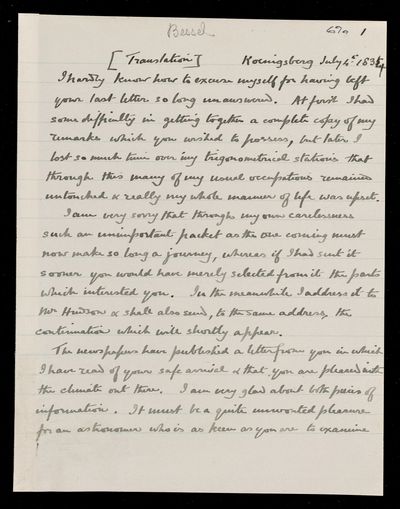 Bessel
1
[Translation] Koenigsberg July 4th 1834
I hardly know how to excuse myself for having left
your last letter so long unanswered. At first I had
some difficulty in getting together a complete copy of my
remarks which you wished to possess, but later I
lost so much time over my trigonometrical stations that
through this many of my usual occupations remained
untouched & really my whole manner of life was upset.
I am very sorry that through my own carelessness
such an unimportant packet as the one coming must
now make so long a journey, whereas if I had sent it
sooner you would have merely selected from it the parts
which interested you. In the meanwhile I address it to
Mr Hudson & shall also send, to the same address, the
continuation which will shortly appear.
The newspapers have published a letter from you in which
I have read of your safe arrival & that you are pleased with
the climate out there. I am very glad about both pieces of
information. It must be a quite unwonted pleasure
for an astronomer who is as keen as you are to examine